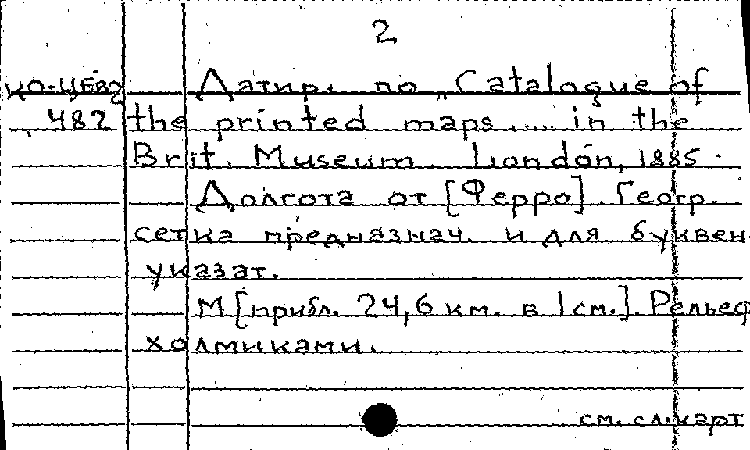 2
Ко-Цеви Датир. по „Catalogue of
482 the printed maps.... in the
Brit. Museum. London, 1885.
Долгота от [Ферро]. Геогр.
сетка предназнач. и для буквен.
указат.
М [прибл. 24,6 км. в 1 см.]. Рельеф
холмиками.
см. сл. карт